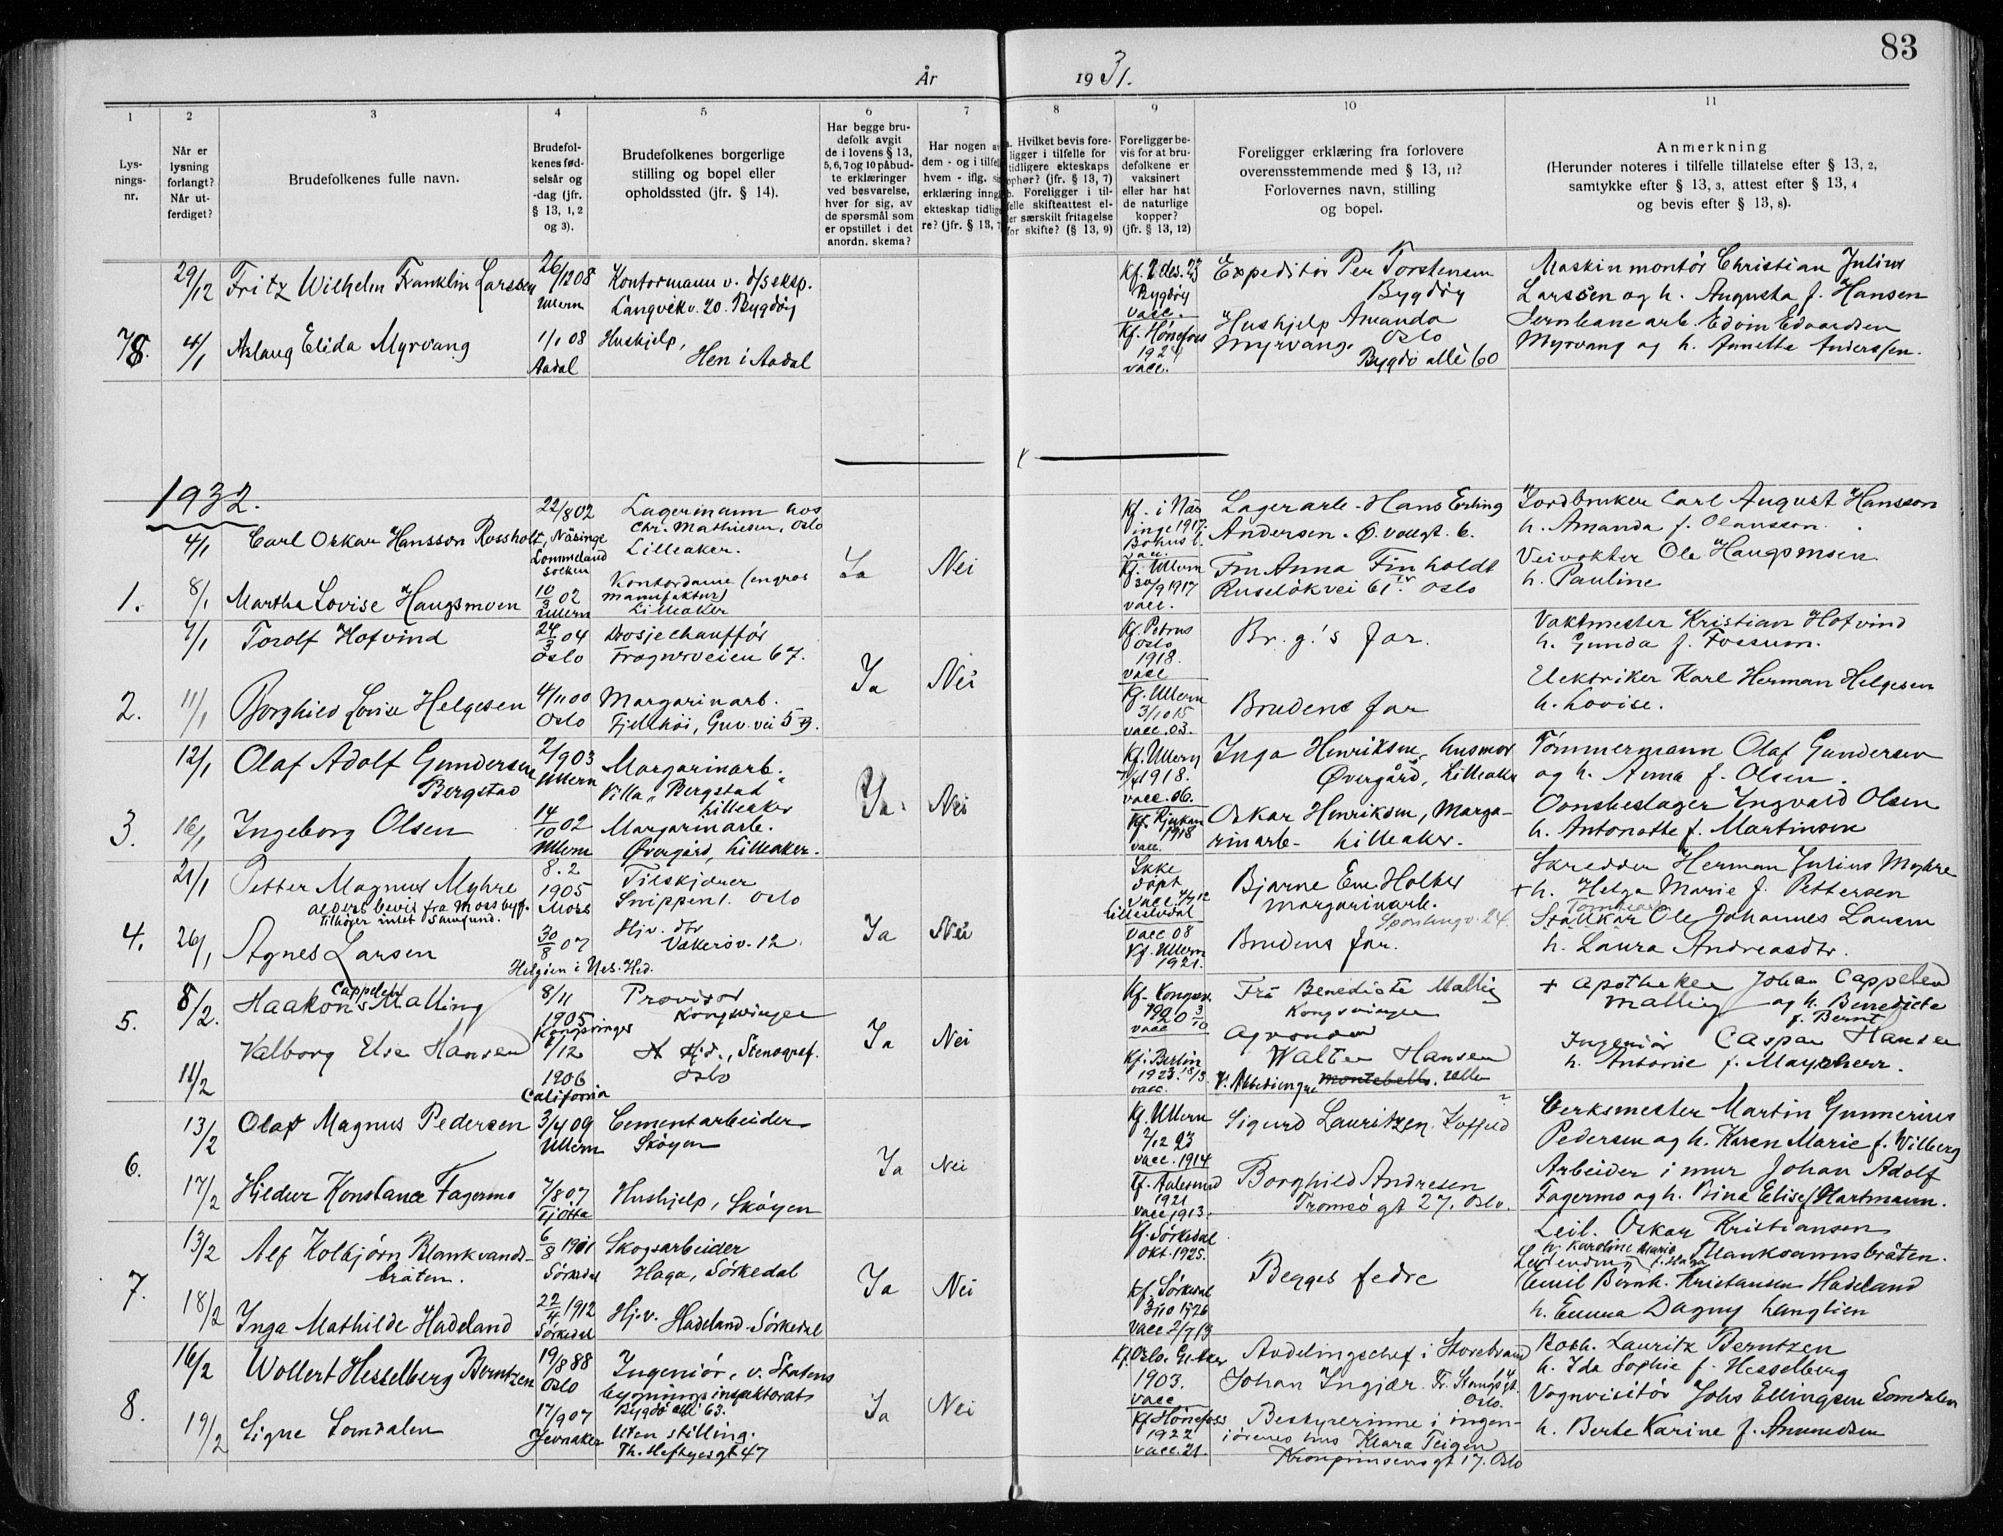 83
År 1931.
1 2 3 4 5 6 7 8 9 10 11
Lys-
nings-
nr.
Når er
lysning
forlangt?
Når ut-
ferdiget?
Brudefolkenes fulle navn.
Brudefol-
kenes fød-
selsår og
-dag (jfr.
§ 13, 1, 2
og 3).
Brudefolkenes borgerlige
stilling og bopel eller
opholdssted (jfr. § 14).
Har begge bru-
defolk avgit
de i lovens § 13,
5, 6, 7 og 10 påbud-
te erklæringer
ved besvarelse,
hver for sig, av
de spørsmål som
er opstillet i det
anordn. skema?
Har nogen av
dem - og i tilfelle
hvem - iflg.
erklæring inngått
ekteskap tidlige-
re? (jfr. § 13, 7
a. Hvilket bevis fore-
ligger i tilfelle for
tidligere ekteskaps
ophør? (jfr. § 13, 7)
b. Foreligger i til-
felle skifteattest el-
ler særskilt fritagelse
for skifte? (§ 13, 9)
Foreligger be-
vis for at bru-
defolkene er
vaksinert
eller har hat
de naturlige
kopper?
(jfr. § 13, 12)
Foreligger erklæring fra forlovere
overensstemmende med § 13, 11?
Forlovernes navn, stilling
og bopel.
Anmerkning
(Herunder noteres i tilfelle tillatelse efter § 13, 2,
samtykke efter § 13, 3, attest efter § 13, 4
og bevis efter § 13, 8).
29/12 Fritz Wilhelm Franklin Larssen
26/12 08
Ullern
Kontormann v. d/s eksp.
Langvikv. 20. Bygdøy
Kf. 2 des. 23
Bygdøy
vacc.
Expeditør Per Torstensen
Bygdøy
Maskinmontør Christian Julius
Larssen og h. Augusta f. Hansen
78. 4/1 Aslaug Elida Myrvang
1/1 08
Aadal
Hushjelp,
Hen i Aadal
Kf. Hønefoss
1924
vacc.
Hushjelp Amanda
Myrvang. Oslo
Bygdø allé 60
Jernbanearb. Edvin Edvardsen
Myrvang og h. Annette Anderssen.
1932.
4/1 Carl Oskar Hansson Rossholt,
22/8 02
Näsinge
Lommeland
socken
Lagermann hos
Chr. Mathiesen, Oslo
Lilleaker.
Ja Nei
Kf. i Näs
inge 1917.
Bohus l.
vacc.
Lagerarb. Hans Erling
Andersen. Ø. vollgt. 6.
Jordbruker Carl August Hansson
h. Amanda f. Olausson.
1. 8/1 Martha Lovise Haugsmoen
10/3 02
Ullern
Kontordame (engros
manufaktur)
Lilleaker
Kf. Ullern
30/9 1917
vacc.
Fru Anna Finholdt
Ruseløkvei 61 IV Oslo
Veivokter Ole Haugsmoen
h. Pauline
7/1 Torolf Hofvind
24/3 04
Oslo
Drosjechauffør
Frognerveien 67.
Ja Nei
Kf. Petrus
Oslo
1918.
vacc
Br. g.'s far.
Vaktmester Kristian Hofvind
h. Gunda f. Fossum.
2. 11/1 Borghild Lovise Helgesen
4/11 00
Oslo
Margarinarb.
Fjellhøi, Guv. vei 5 B.
Kf. Ullern
3/10 15
vacc. 03.
Brudens far
Elektriker Karl Herman Helgesen
h. Lovise.
12/1 Olaf Adolf Gundersen
Bergstad
2/9 03
Ullern
Margarinarb.
Villa „Bergstad
Lilleaker
Ja. Nei
Kf. Ullern
1918.
vacc. 06.
Inga Henriksen, husmor
Øvergård, Lilleaker
Tømmermann Olaf Gundersen
og h. Anna f. Olsen.
3. 16/1 Ingeborg Olsen
14/10 02
Ullern
Margarinarb.
Øvergård, Lilleaker.
Kf. Rjukan
1918
vacc.
Oskar Henriksen, Marga-
rinarb. Lilleaker.
Ovnsbeslager Ingvald Olsen
h. Antonette f. Martinsen
21/1 Petter Magnus Myhre
aldersbevis fra Moss byf.
Tilhører intet Samfund.
8.2
1905
Moss
Tilskjærer
Snippen 1. Oslo
Ja Nei
Ikke
døpt
vacc. 4/9 12
Bjarne Em Holter
Margarinarb.
Sponhugv. 24.
Skredder Herman Julius Myhre
+ h. Helga Marie f. Pettersen
4. 26/1 Agnes Larsen
30/8 07
Helgøen i Nes. Hed.
Hjv. dtr
Vækerøv. 12
Lillestrdal
vacc 08
Kf. Ullern
1921.
Brudens far.
Stallkar Ole Johannes Larsen
h. Laura Andreasdtr.
5. 8/2. Haakon Cappelen Malling
8/11
1905
Kongsvinger
Provisor
Kongsvinger
Ja Nei
Kf. Kongsv.
1920 3/10
vacc
Frå Benedicte Malling
Kongsvinger
+ Apotheker Johan Cappelen
Malling og h. Benedicte
f. Bernt
11/2 Valborg Else Hansen
1/12
1906
California
Hjd., Stenograf.
Oslo
Kf. Berlin
1923. 18/3
vacc.
Agronom
Walter Hansen
V. Abbediengen Montebello, Ullern
Ingeniør Caspar Hansen
h. Antonie f. Mayrherr.
13/2 Olaf Magnus Pedersen
3/4 09
Ullern
Cementarbeider
Skøyen
Ja Nei
Kf. Ullern
2/12 23
vacc. 1914
Sigurd Lauritzen
Verksmester Martin Gunnerius
Pedersen og h. Karen Marie f. Wilberg
6. 17/2 Hildur Konstance Fagermo
7/8 07
Tjøtta
Hushjelp, Skøyen
Kf. Aalesund
1921
vacc 1913.
Borghild Andresen
Tromsøgt 27. Oslo.
Arbeider i mur Johan Adolf
Fagermo og h. Bina Elise f. Hartmann.
13/2 Alf Kolbjørn Blankvands-
bråten.
6/8 1901
Sørkedal
Skogsarbeider
Haga, Sørkedal
Ja Nei
Kf. Sørkedal
Okt. 1925.
Begges fedre
Leil. Oskar Kristiansen
h. Karoline Marie f. Haga Blankvannsbråten.
7. 18/2 Inga Mathilde Hadeland
22/4 1912
Sørkedal
Hjv. Hadeland Sørkedal
Kf. Sørkedal
3/10 1926
vacc 2/7 13
Leilending
Emil Bernh. Kristiansen Hadeland
h. Emma Dagny Langlien
16/2 Wollert Hesselberg Berntzen
19/8 88
Oslo
Ingeniør, v. Statens
bygningsinspektorat
Bygdø allé 63.
Ja Nei
Kf. Oslo.
1903.
vacc
Avdelingschef i Storebrand
Johan Ingjær. Fr. Stangsgt.
Oslo.
Lauritz Berntzen
h. Ida Sophie f. Hesselberg
8. 19/2 Signe Somdalen
17/9 07
Jevnaker
Uten stilling.
Th. Heftyesgt 47
Kf. Hønefoss
1922
vacc. 21.
Bestyrerinne i ingen-
iørenes hus Klara Teigen
Kronprinsensgt 17. Oslo
Vognvisitør Johs Ellingsen Somdalen
h. Berte Karine f. Amundsen